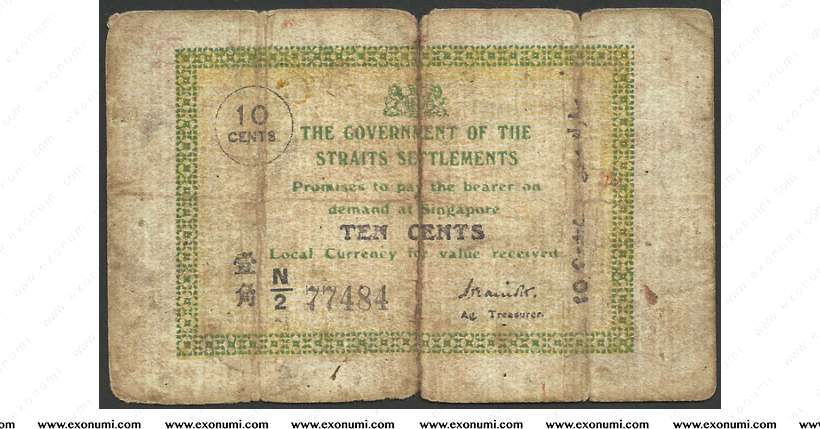 10
CENTS
THE GOVERNMENT OF THE
STRAITS SETTLEMENTS
Promises to pay the bearer on
demand at Singapore
TEN CENTS
Local Currency for value received
壹
角
N
2
77484
Ag Treasurer.
www.exonumi.com www.exonumi.com www.exonumi.com www.exonumi.com www.exonumi.com www.exonumi.com